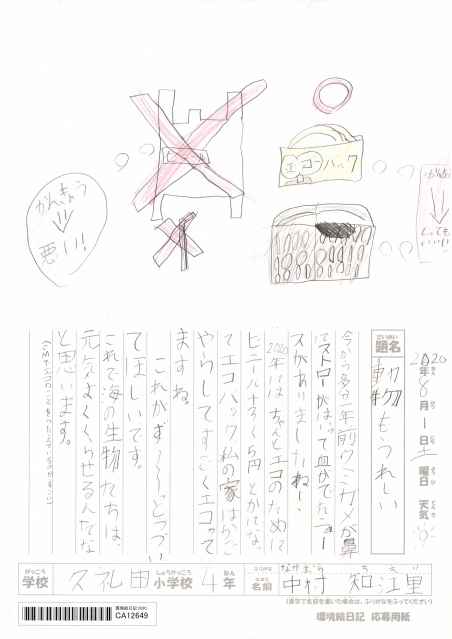 かんきょう
悪い!!
エコーバック
かんきょう
とっても
いい!!!
だいめい
題名
動物もうれしい
2020年8月1日土曜日 天気
今から多分年前ウミガメが鼻
にストローがはいって血がでたニュー
スがありましたね!
2020年にはちゃんとエコのために
ビニールぶくろ5円とかになっ
てエコバック、私の家はかご
やらしてすごくエコって
ますね。
これがず〜〜っとつづい
てほしいです。
これで海の生物たちは、
元気よくくらせるんだな
と思います。
がっこう
学校
久礼田小学校
しょうがっこう
4年
ねん
ふりがな
なかむら ちえり
なまえ
名前
中村 知江里
(漢字で名前を書いた場合は、ふりがなをふってください)
環境絵日記 2020
CA12649
環境絵日記 応募用紙